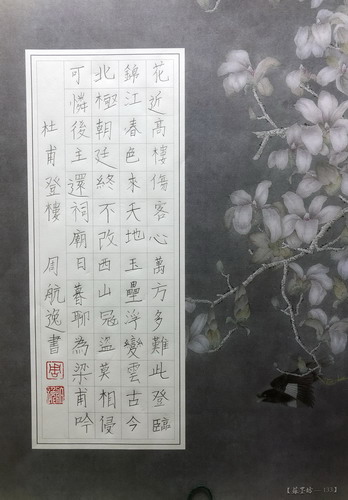 花近高樓傷客心萬方多難此登臨
錦江春色來天地玉壘浮變雲古今
北極朝廷終不改西山寇盜莫相侵
可憐後主還祠廟日暮聊為梁甫吟
杜甫登樓 周航逸書